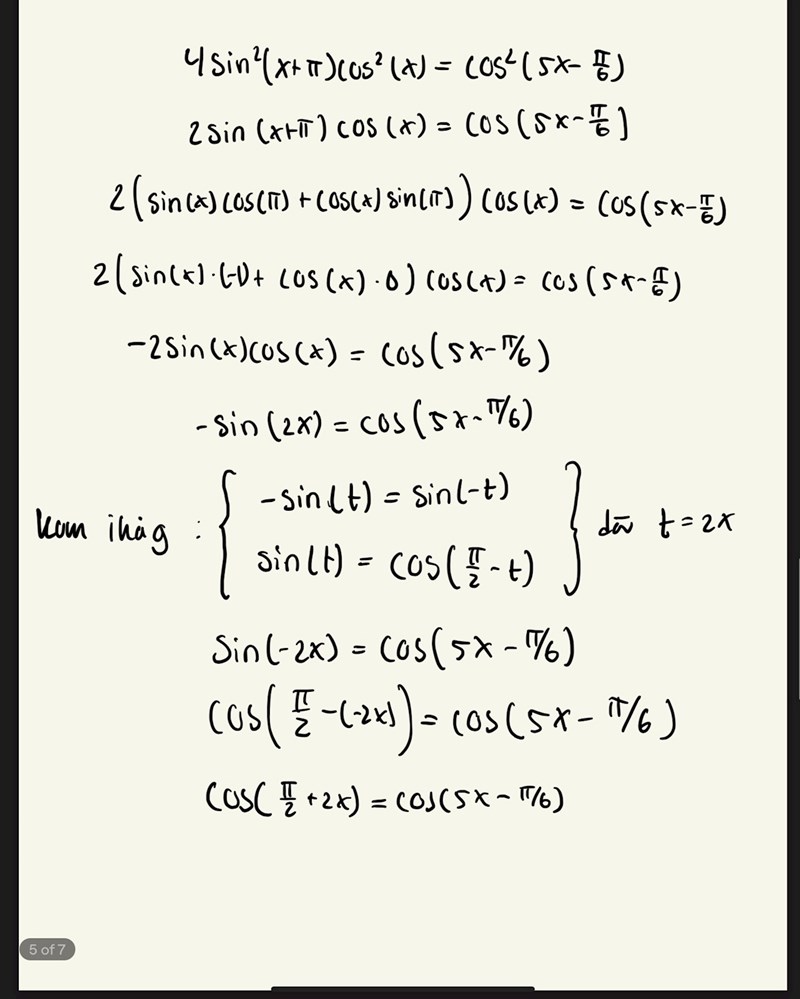 4 sin²(x+π) cos²(x) = cos²(5x - π/6)
2 sin (x+π) cos (x) = cos (5x - π/6]
2 (sin(x) cos(π) + cos(x) sin(π)) cos(x) = cos(5x - π/6)
2 (sin(x) · (-1) + cos(x) · 0) cos(x) = cos (5x - π/6)
-2 sin(x) cos(x) = cos(5x - π/6)
- sin (2x) = cos(5x - π/6)
kom ihåg : { -sin(t) = sin(-t)
sin(t) = cos(π/2 - t) } då t = 2x
Sin(-2x) = cos(5x - π/6)
cos(π/2 - (-2x)) = cos(5x - π/6)
cos(π/2 + 2x) = cos(5x - π/6)
5 of 7